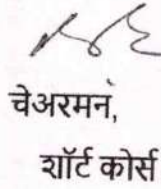 चेअरमन,
शॉर्ट कोर्स